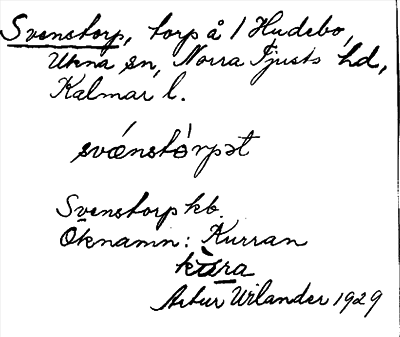 Svenstorp, torp å 1 Hudebo,
Ukna sn, Norra Tjusts hd,
Kalmar l.
svǽnstórpət
Svenstorp kb.
Öknamn: Kurran
kùra
Artur Wilander 1929